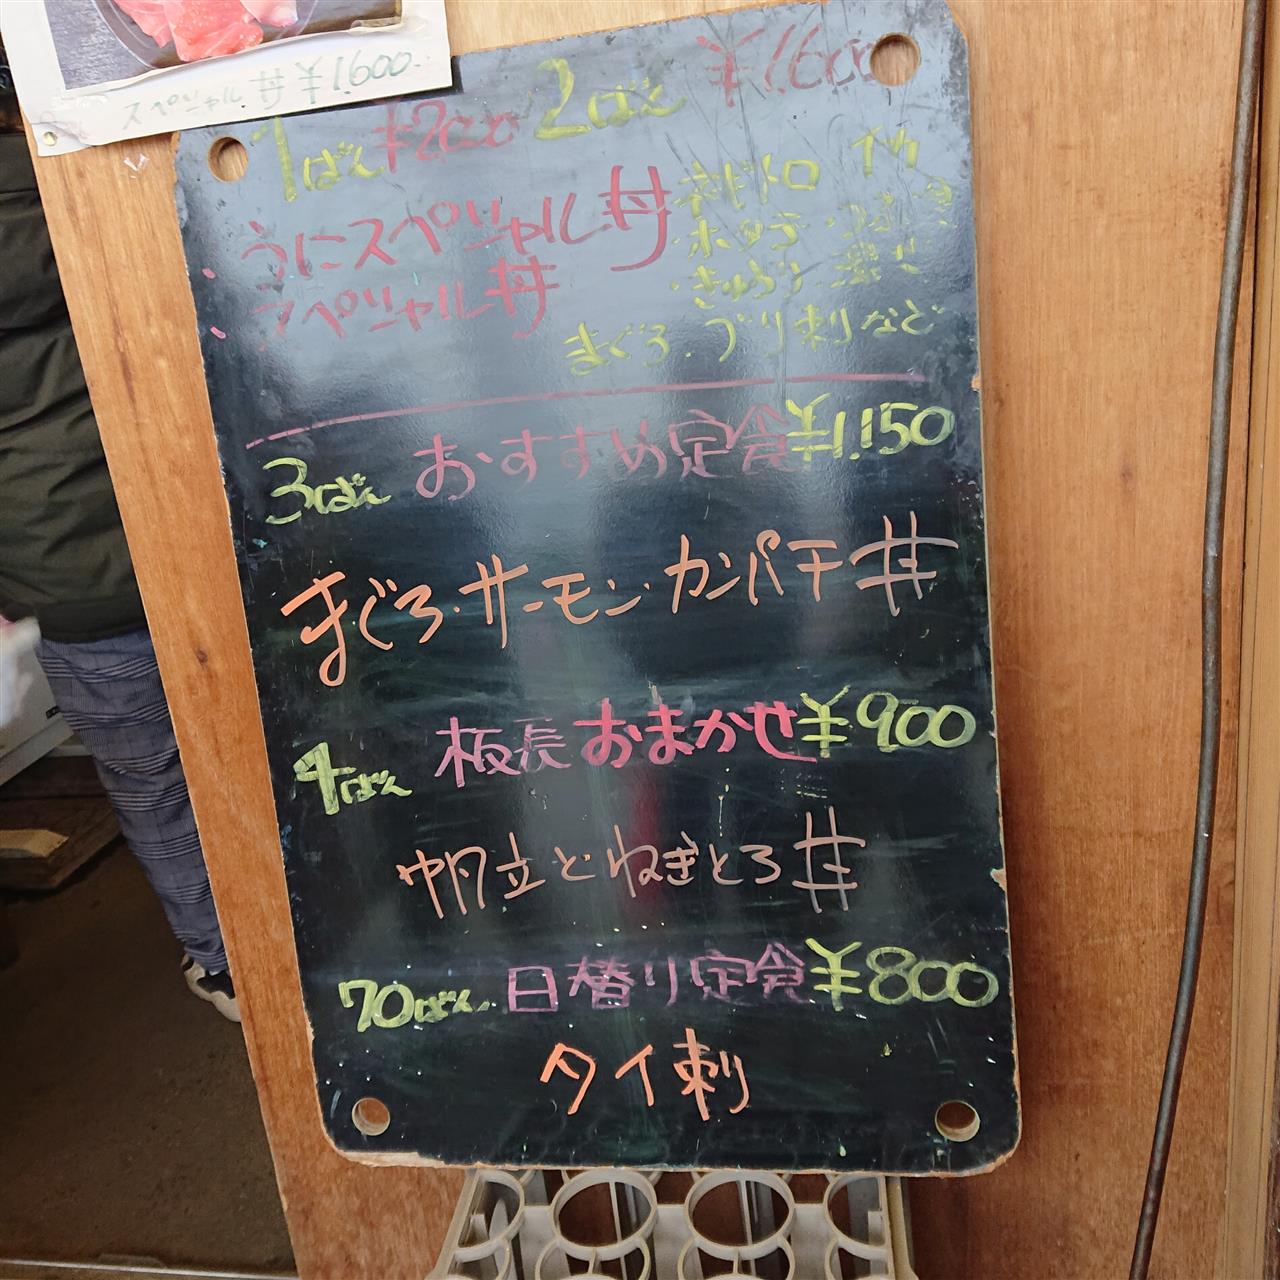 スペシャル丼 ¥1.600
1ばん ¥2000 2ばん ¥1.600
・うにスペシャル丼
・スペシャル丼
ネギトロ イカ
・ホッテ・
・きゅうり・
まぐろ.ブリ刺など
3ばん おすすめ定食¥1.150
まぐろ・サーモン・カンパチ丼
4ばん 板長おまかせ¥900
帆立とねぎとろ丼
70ばん 日替り定食¥800
タイ刺